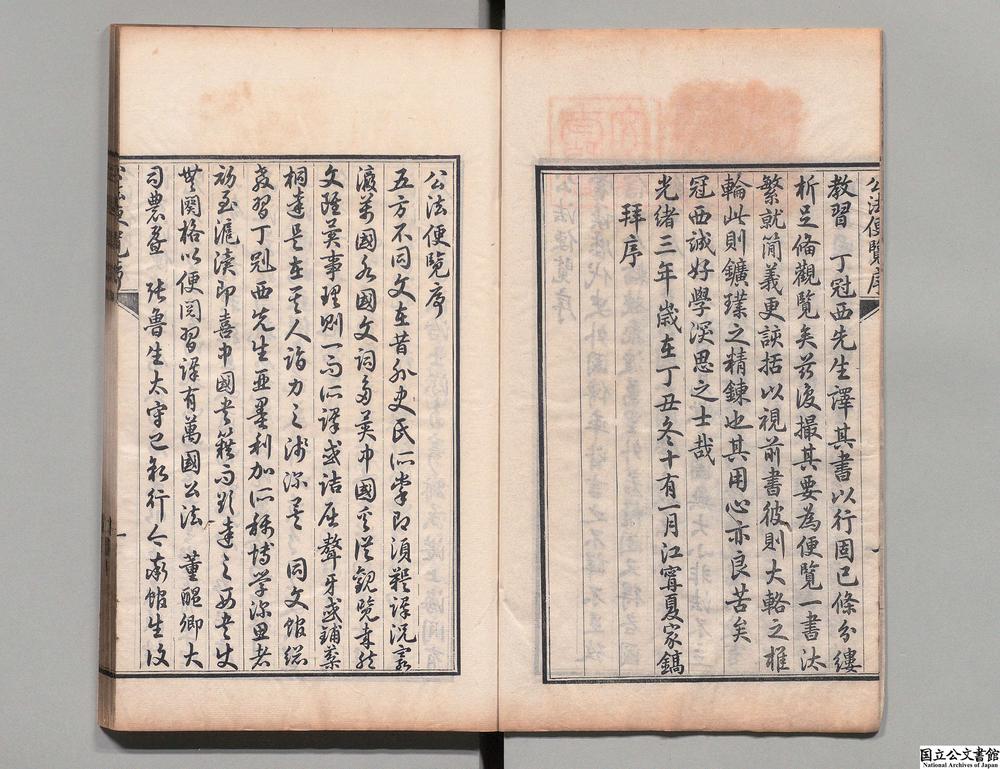 公法便覽序
教習 丁冠西先生譯其書以行固已條分縷
析足備觀覽矣茲復撮其要為便覽一書汰
繁就簡義更該括以視前書彼則大輅之椎
輪此則鑛璞之精鍊也其用心亦良苦矣
冠西誠好學深思之士哉
光緒三年歲在丁丑冬十有一月江甯夏家鎬
拜序
公法便覽序
五方不同文在昔外史氏所掌即須繙譯況寰
瀛萬國各國文詞多異中國爰從觀覽
文雖異事理則一而所譯或詰屈聱牙或鋪葉
桐達是在其人詣力之淺深矣 同文館總
教習丁冠西先生亞墨利加所稱博學深思者
初至滬瀆即喜中國書籍而欲達之西書丈
無閡格以便閱習譯有萬國公法 董醞卿大
司農 張魯生太守已敘行今率館生復
公法便覽序
国立公文書館
National Archives of Japan